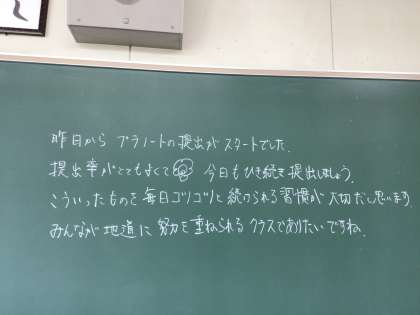 昨日から プラノートの提出が スタートでした.
提出率がとてもよくて 今日もひき続き提出しましょう.
こういったものを毎日コツコツと続けられる習慣が大切だと思います
みんなが地道に努力を重ねられるクラスでありたいですね.